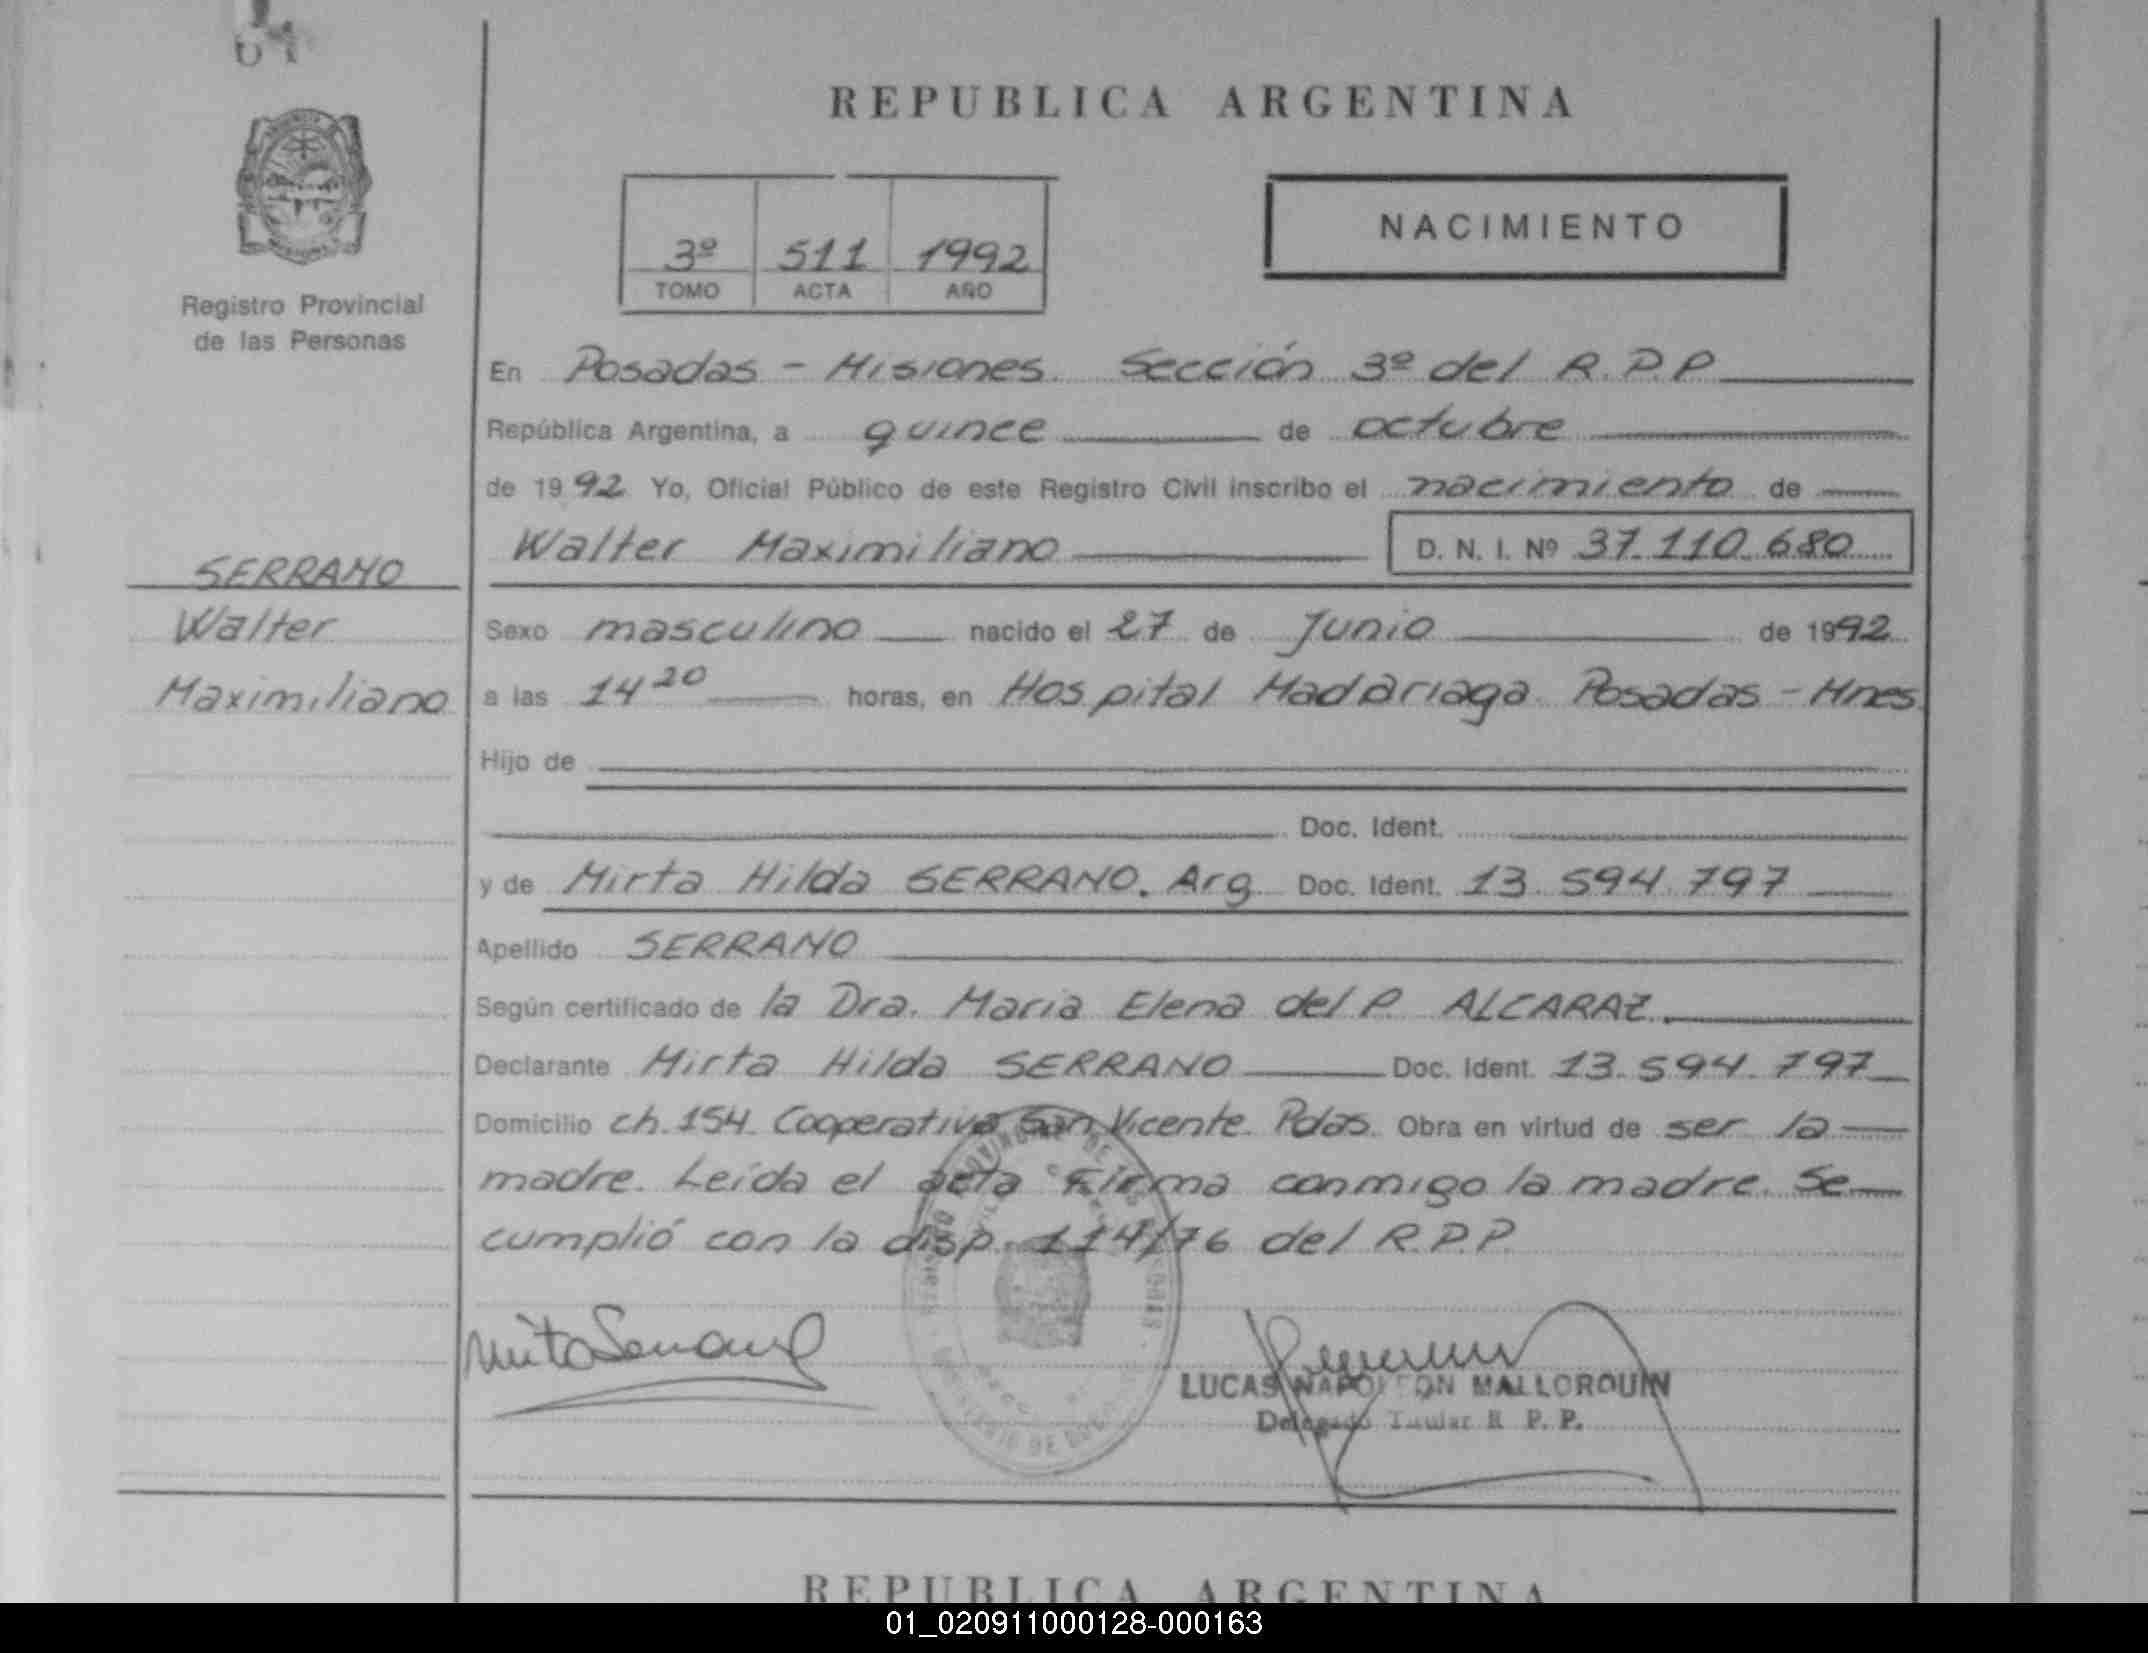 REPUBLICA ARGENTINA
3º 511 1992
TOMO ACTA AÑO
NACIMIENTO
Registro Provincial
de las Personas
SERRANO
Walter
Maximiliano
En Posadas - Misiones. Sección 3º del R.P.P
República Argentina, a quince de octubre
de 1992 Yo, Oficial Público de este Registro Civil inscribo el nacimiento de
Walter Maximiliano D. N. I. Nº 37.110.680
Sexo masculino nacido el 27 de Junio de 1992
a las 14 20 horas, en Hospital Madariaga Posadas - Mnes
Hijo de
Doc. Ident.
y de Mirta Hilda SERRANO. Arg Doc. Ident. 13.594.797
Apellido SERRANO
Según certificado de la Dra. Maria Elena del P. ALCARAZ.
Declarante Mirta Hilda SERRANO Doc. Ident. 13.594.797
Domicilio ch. 154 Cooperativa San Vicente Pdas. Obra en virtud de ser la
madre. Leída el acta firma conmigo la madre. Se
cumplió con la disp. 114/76 del R.P.P.
LUCAS NAPOLEON MALLORQUIN
Delegado Titular R. P. P.
REPUBLICA ARGENTINA
01_020911000128-000163